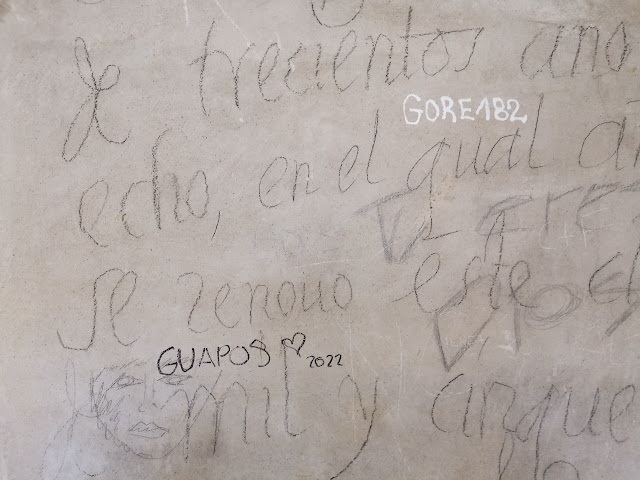 de trecientos ano
GORE182
echo, en el qual
se renouo este
GUAPOS 2022
mil y cinque